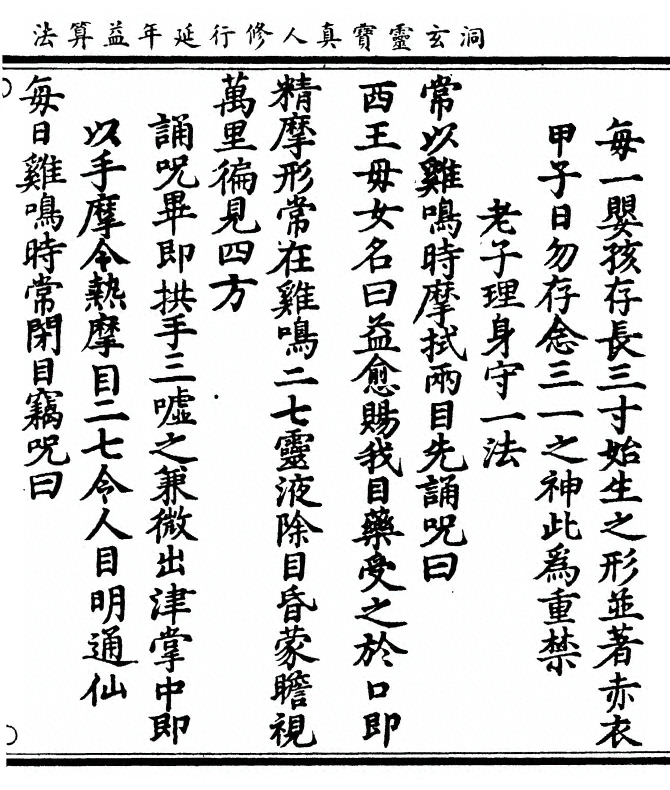 洞玄靈寶真人修行延年益算法
每一嬰孩存長三寸始生之形並著赤衣
甲子日勿存念三一之神此為重禁
老子理身守一法
常以雞鳴時摩拭兩目先誦呪曰
西王母女名曰益愈賜我目藥受之於口即
精摩形常在雞鳴二七靈液除目昏蒙瞻視
萬里徧見四方
誦呪畢即拱手三噓之兼微出津掌中即
以手摩令熱摩目二七令人目明通仙
每日雞鳴時常閉目竊呪曰